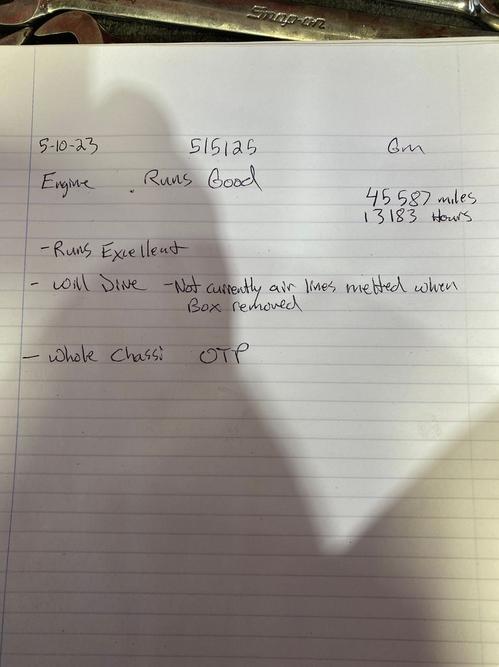 Snap-on
5-10-23 515125 Gm
Engine . Runs Good
45587 miles
13183 Hours
- Runs Excellent
- Will Drive - Not currently air lines melted when
Box removed
- Whole Chassi OTP